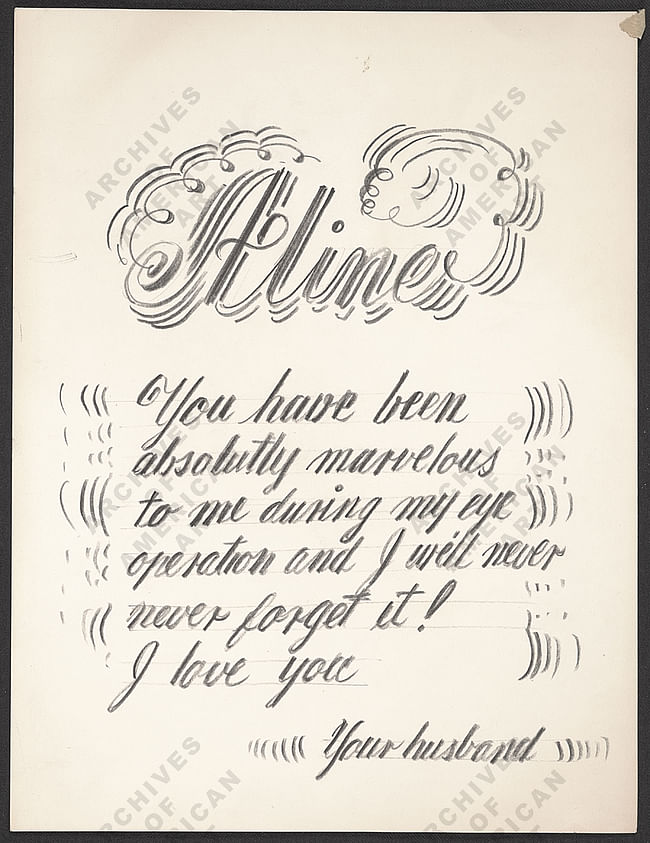 Aline
You have been
absolutly marvelous
to me during my eye
operation and I will never
never forget it!
I love you
Your husband
ARCHIVES
OF
AMERICAN
ARCHIVES
OF
AMERICAN
ARCHIVES
OF
AMERICAN
ARCHIVES
OF
AMERICAN
ARCHIVES
OF
AMERICAN
ARCHIVES
OF
AMERICAN